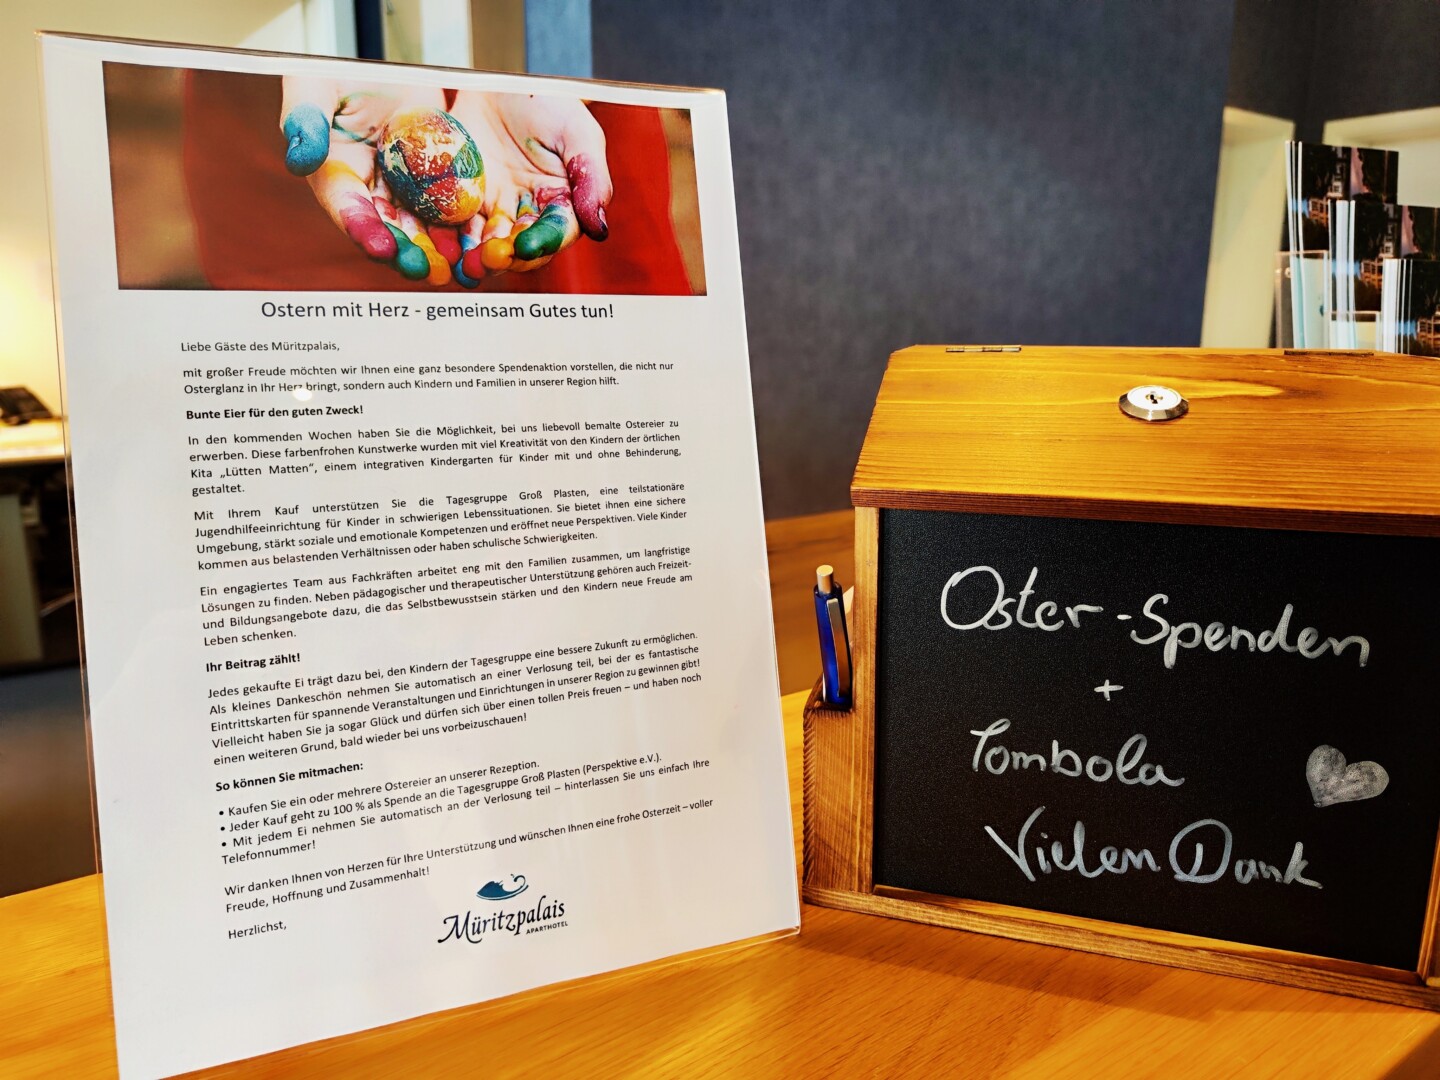 Ostern mit Herz - gemeinsam Gutes tun!
Liebe Gäste des Müritzpalais,
mit großer Freude möchten wir Ihnen eine ganz besondere Spendenaktion vorstellen, die nicht nur
Osterglanz in Ihr Herz bringt, sondern auch Kindern und Familien in unserer Region hilft.
Bunte Eier für den guten Zweck!
In den kommenden Wochen haben Sie die Möglichkeit, bei uns liebevoll bemalte Ostereier zu
erwerben. Diese farbenfrohen Kunstwerke wurden mit viel Kreativität von den Kindern der örtlichen
Kita „Lütten Matten“, einem integrativen Kindergarten für Kinder mit und ohne Behinderung,
gestaltet.
Mit Ihrem Kauf unterstützen Sie die Tagesgruppe Groß Plasten, eine teilstationäre
Jugendhilfeeinrichtung für Kinder in schwierigen Lebenssituationen. Sie bietet ihnen eine sichere
Umgebung, stärkt soziale und emotionale Kompetenzen und eröffnet neue Perspektiven. Viele Kinder
kommen aus belastenden Verhältnissen oder haben schulische Schwierigkeiten.
Ein engagiertes Team aus Fachkräften arbeitet eng mit den Familien zusammen, um langfristige
Lösungen zu finden. Neben pädagogischer und therapeutischer Unterstützung gehören auch Freizeit-
und Bildungsangebote dazu, die das Selbstbewusstsein stärken und den Kindern neue Freude am
Leben schenken.
Ihr Beitrag zählt!
Jedes gekaufte Ei trägt dazu bei, den Kindern der Tagesgruppe eine bessere Zukunft zu ermöglichen.
Als kleines Dankeschön nehmen Sie automatisch an einer Verlosung teil, bei der es fantastische
Eintrittskarten für spannende Veranstaltungen und Einrichtungen in unserer Region zu gewinnen gibt!
Vielleicht haben Sie ja sogar Glück und dürfen sich über einen tollen Preis freuen – und haben noch
einen weiteren Grund, bald wieder bei uns vorbeizuschauen!
So können Sie mitmachen:
• Kaufen Sie ein oder mehrere Ostereier an unserer Rezeption.
• Jeder Kauf geht zu 100 % als Spende an die Tagesgruppe Groß Plasten (Perspektive e.V.).
• Mit jedem Ei nehmen Sie automatisch an der Verlosung teil – hinterlassen Sie uns einfach Ihre
Telefonnummer!
Wir danken Ihnen von Herzen für Ihre Unterstützung und wünschen Ihnen eine frohe Osterzeit – voller
Freude, Hoffnung und Zusammenhalt!
Herzlichst,
Müritzpalais
APARTHOTEL
Oster-Spenden
+
Tombola
Vielen Dank